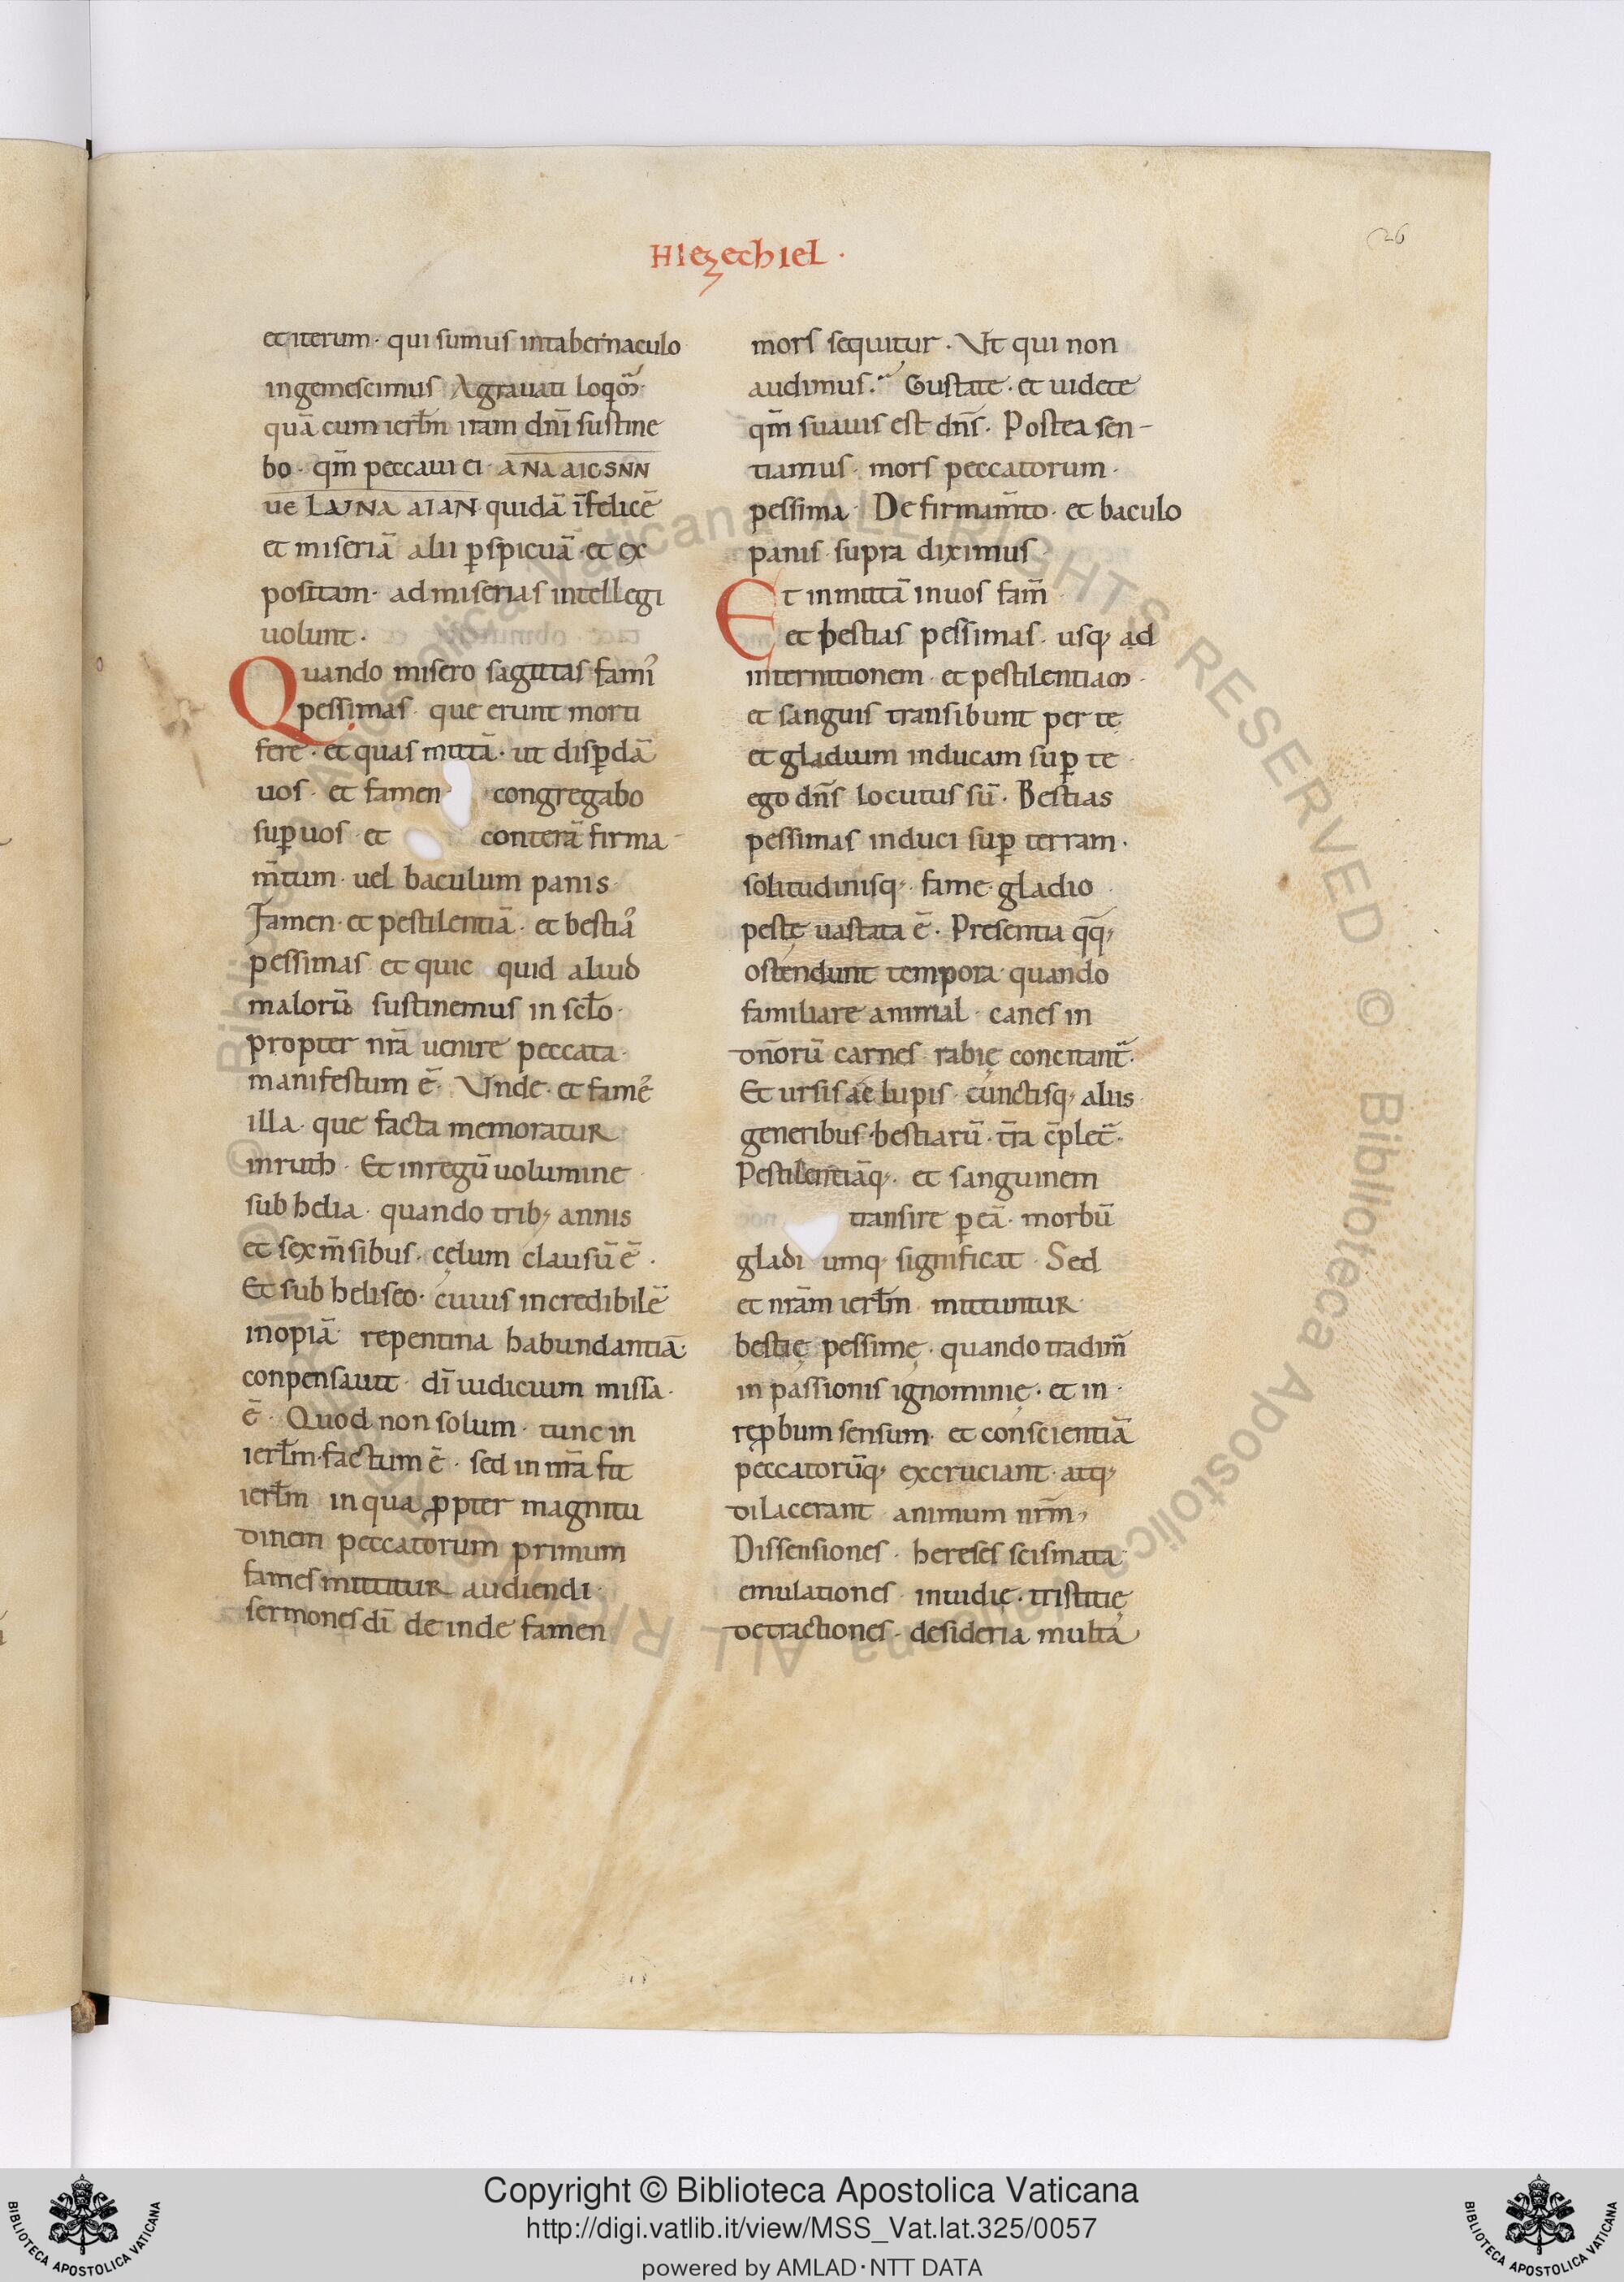 Hiezechiel ·
26
et iterum · qui sumus intabernaculo
ingemescimus Agrauati loqm̄
quā cum ierl̄m iram dn̄i sustine
bo · qm̄ peccaui ei · ANA AIC SNN
ue LAINA AIAN quidā īfelicē
et miseriā alii ꝑspicuā · et ex
positam · ad miserias intellegi
uolunt ·
Quando misero sagittas fami
pessimas · que erunt morti
fere · et quas mittā · ut disꝑdā
uos · et famen congregabo
suꝑ uos · et conterā firma
m̄tum · uel baculum panis
Famen · et pestilentiā · et bestia
pessimas et quic quid aliud
malorū sustinemus in scl̄o ·
propter nr̄a uenire peccata ·
manifestum ē · Unde · et fame
illa · que facta memoratur
in ruth · Et in regū uolumine
sub helia · quando trib; annis
et sex m̄sibus · cęlum clausū ē ·
Et sub heliseo · cuius incredibilē
inopiā repentina habundantiā ·
conpensauit · dī iudicium missa ·
ē · Quod non solum · tunc in
ierl̄m · factum ē · sed in nr̄a fit
ierl̄m in qua ꝓpter magnitu
dinem peccatorum primum
fames mittitur audiendi ·
sermones dī de inde famen
mors sequitur · Ut qui non
audimus · Gustate · et uidete
qm̄ suauis est dn̄s · Postea sen-
tiamus · mors peccatorum ·
pessima · De firmam̄to · et baculo
panis · supra diximus ·
Et inmittā in uos fam̄
et bestias pessimas · usq; ad
internitionem · et pestilentiam ·
et sanguis transibunt per te
et gladium inducam suꝑ te
ego dn̄s locutus sū · Bestias
pessimas induci suꝑ terram ·
solitudinisq; · fame · gladio
peste uastata ē · Presentia qq̄;
ostendunt tempora · quando
familiare animal · canes in
dn̄orū carnes · rabię concitant̄ ·
Et ursis ac lupis · cunctisq; aliis
generibus · bestiarū · tr̄a c̄plet̄ ·
Pestilentiāq; · et sanguinem
transire ꝑ eā · morbū
gladi umq; significat · Sed
et nr̄am ierl̄m mittuntur
bestię pessimę · quando tradim̄
in passionis ignominię · et in ·
reꝓbum sensum · et conscientiā
peccatorūq; excruciant · atq;
dilacerant animum nr̄m;
Dissensiones · hereses scismata
emulationes · inuidię · tristitię
detractiones · desideria multa
Copyright © Biblioteca Apostolica Vaticana
http://digi.vatlib.it/view/MSS_Vat.lat.325/0057
powered by AMLAD·NTT DATA
BIBLIOTECA APOSTOLICA VATICANA
BIBLIOTECA APOSTOLICA VATICANA